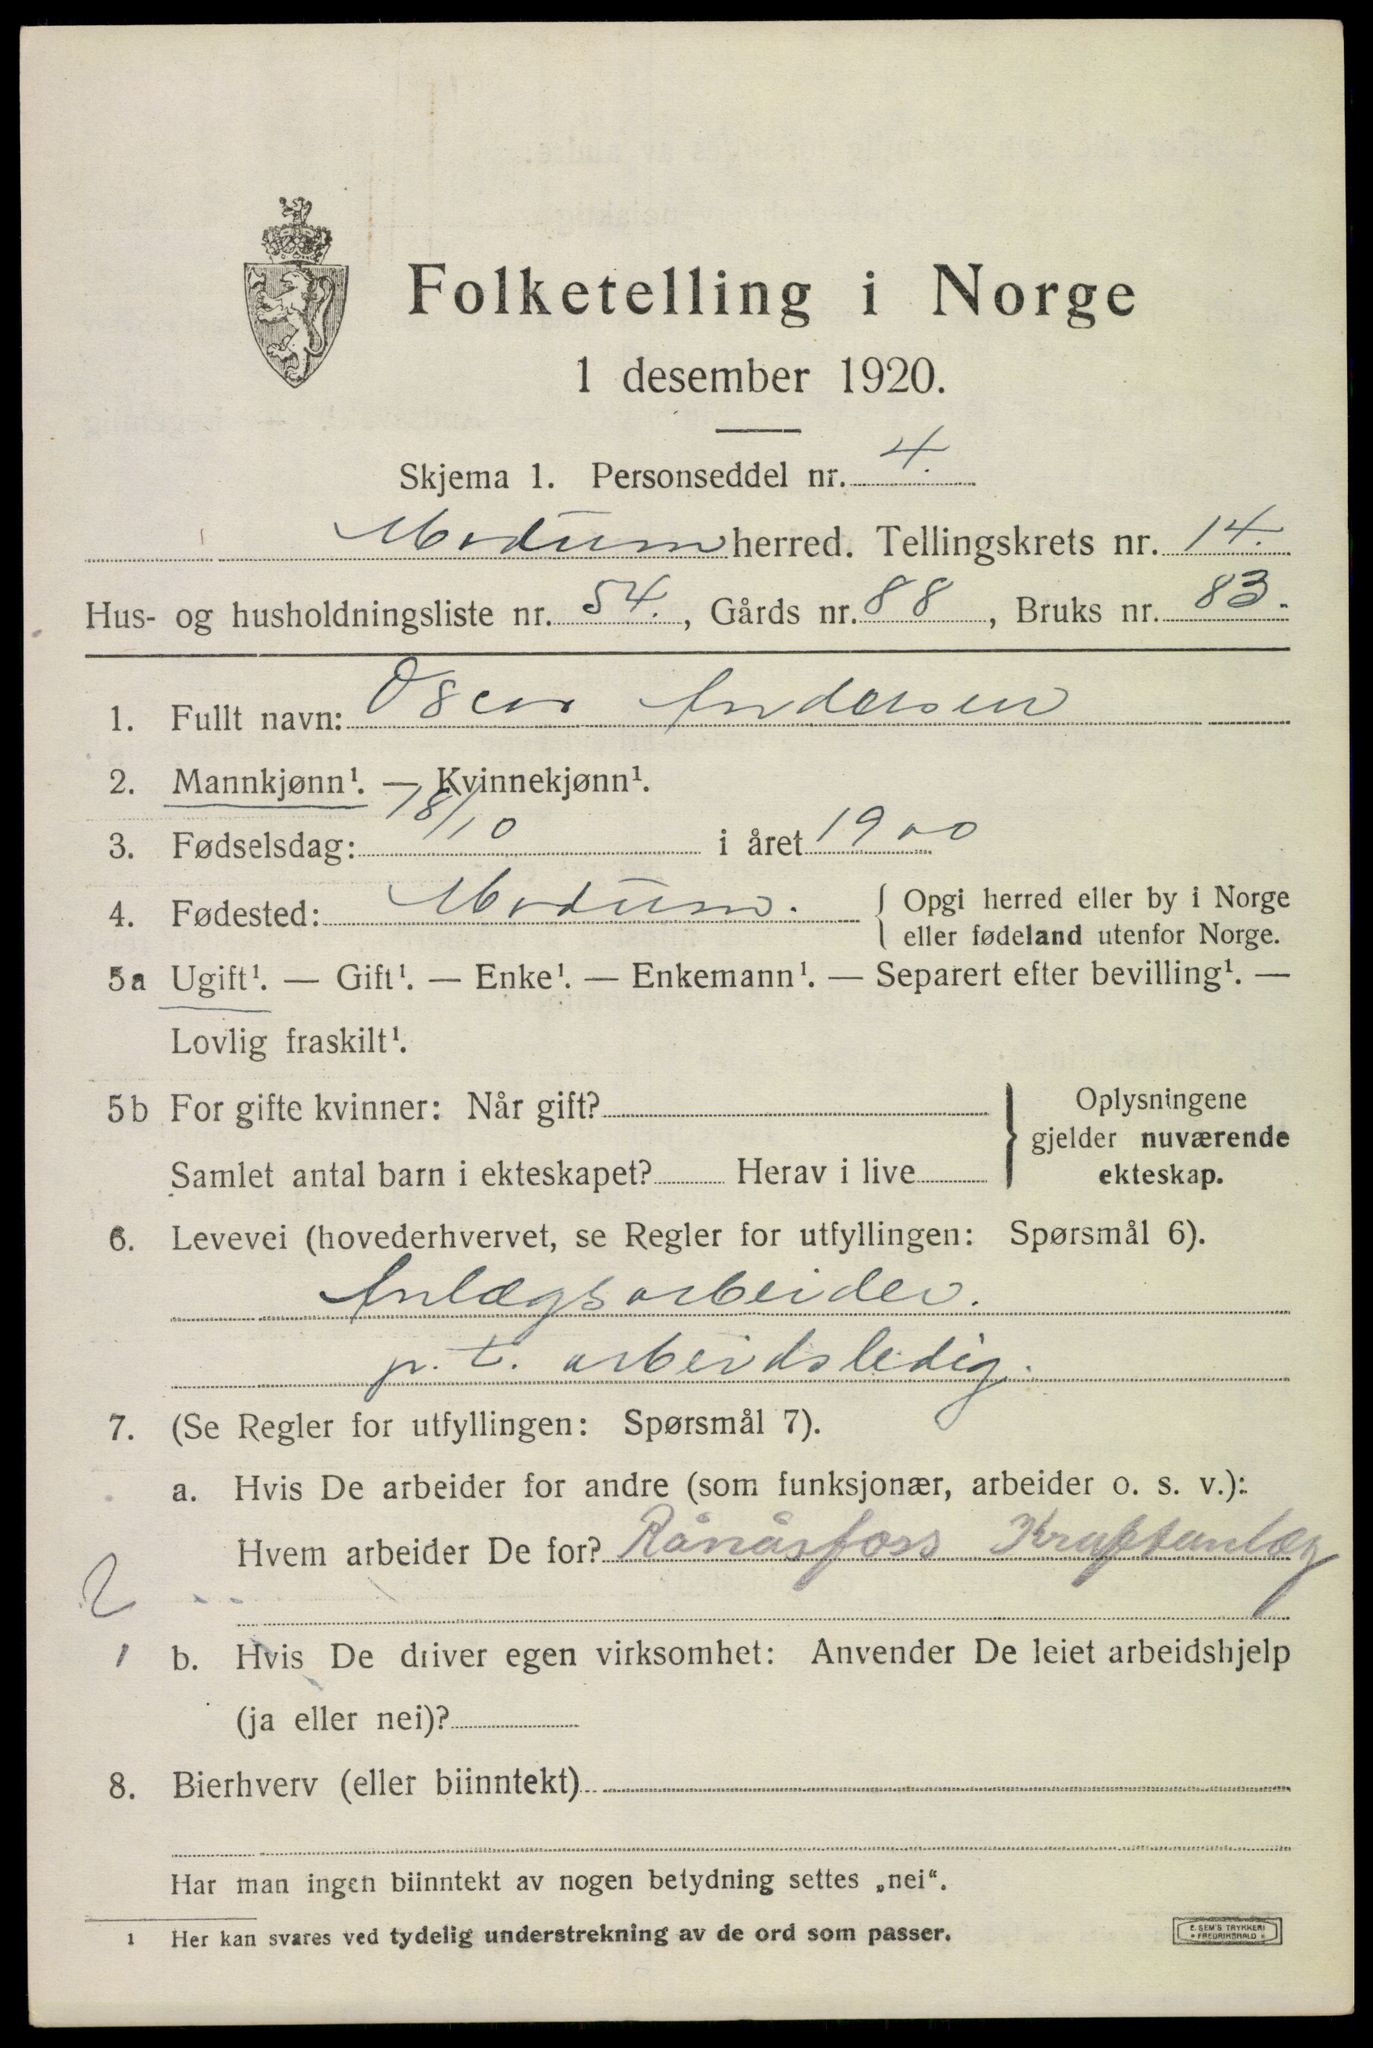 Folketelling i Norge
1 desember 1920.
Skjema 1. Personseddel nr. 4.
Modum herred. Tellingskrets nr. 14.
Hus- og husholdningsliste nr. 54., Gårds nr. 88, Bruks nr. 83.
1. Fullt navn: Oscar Andersen
2. Mannkjønn¹. — Kvinnekjønn¹.
3. Fødselsdag: 18/10 i året 1900
4. Fødested: Modum. { Opgi herred eller by i Norge
eller fødeland utenfor Norge.
5a Ugift¹. — Gift¹. — Enke¹. — Enkemann¹. — Separert efter bevilling¹. —
Lovlig fraskilt¹.
5b For gifte kvinner: Når gift? } Oplysningene
gjelder nuværende
Samlet antal barn i ekteskapet? Herav i live ekteskap.
6. Levevei (hovederhvervet, se Regler for utfyllingen: Spørsmål 6).
Anlægsarbeider.
p.t. arbeidsledig.
7. (Se Regler for utfyllingen: Spørsmål 7).
a. Hvis De arbeider for andre (som funksjonær, arbeider o. s. v.):
Hvem arbeider De for? Rånåsfoss Kraftanlæg
2
1 b. Hvis De driver egen virksomhet: Anvender De leiet arbeidshjelp
(ja eller nei)?
8. Bierhverv (eller biinntekt)
Har man ingen biinntekt av nogen betydning settes „nei“.
1 Her kan svares ved tydelig understrekning av de ord som passer.
E. SEM'S TRYKKERI
FREDRIKSHALD